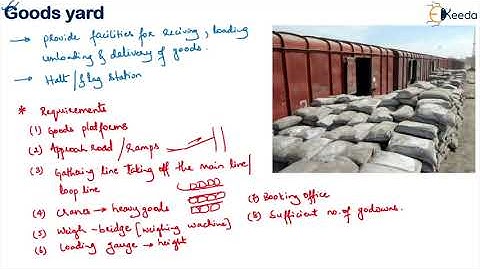 Goods yard
Ekeeda
→ provide facilities for reciving, loading
unloading & delivery of goods.
→ Halt/flag station
* Requirements
(1) Goods platforms
(2) Approach road/ramps
(3) Gathering line taking off the main line/
loop line
(4) Cranes → heavy goods
(5) Weigh-bridge [weighing machine]
(6) Loading gauge → height
(7) Booking office
(8) Sufficient no. of godowns.